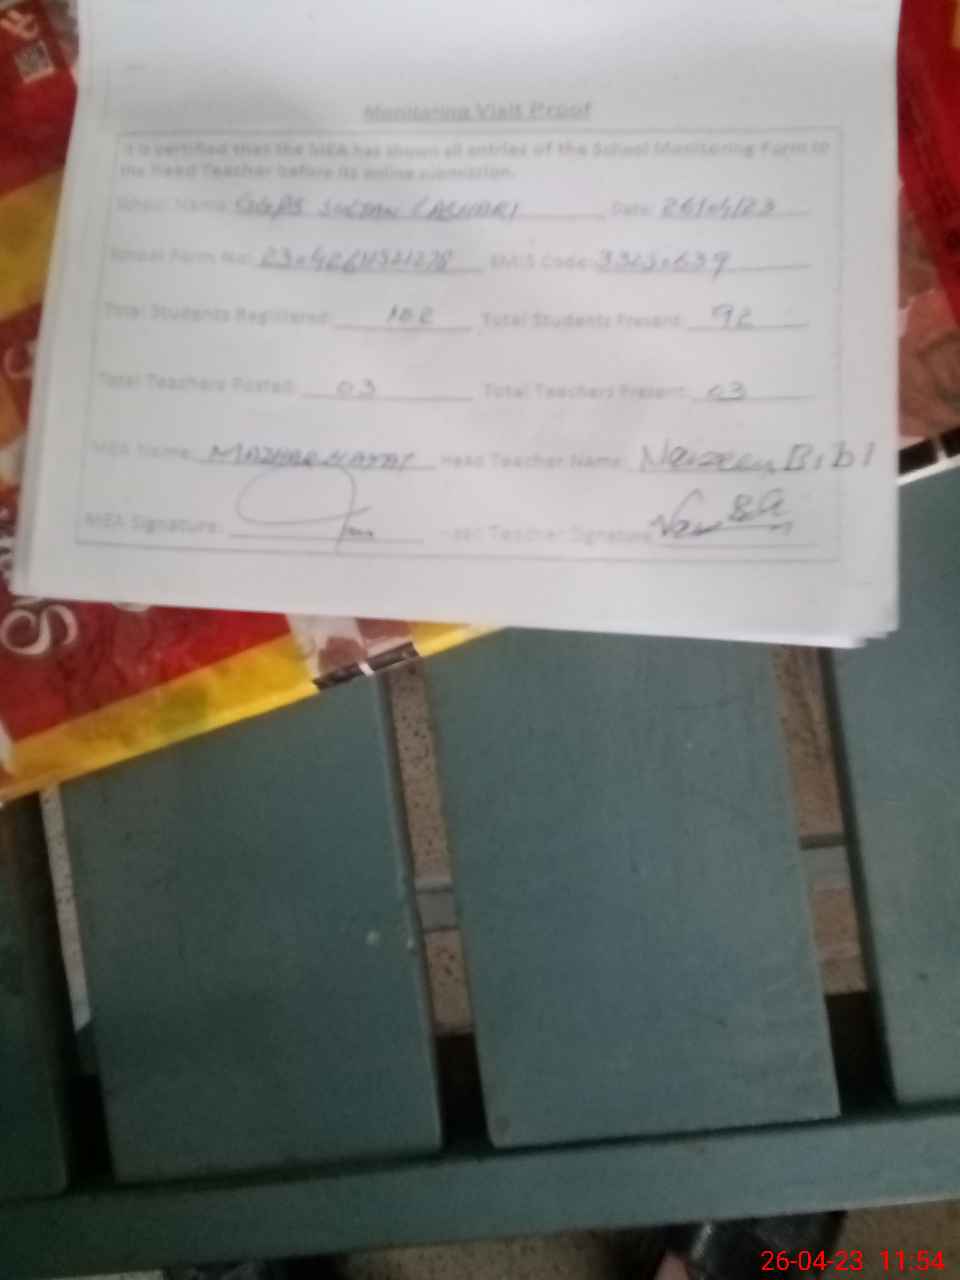 Monitoring Visit Proof
It is certified that the MEA has shown all entries of the School Monitoring Form to
the Head Teacher before its online submission.
School Name: GGPS SULTAN LASHARI Date: 26/04/23
School Form No: EMIS Code:
Total Students Registered: 102 Total Students Present: 92
Total Teachers Posted: 03 Total Teachers Present: 03
MEA Name: MAZHAR HAYAT Head Teacher Name: Bibi
MEA Signature: Head Teacher Signature:
26-04-23 11:54